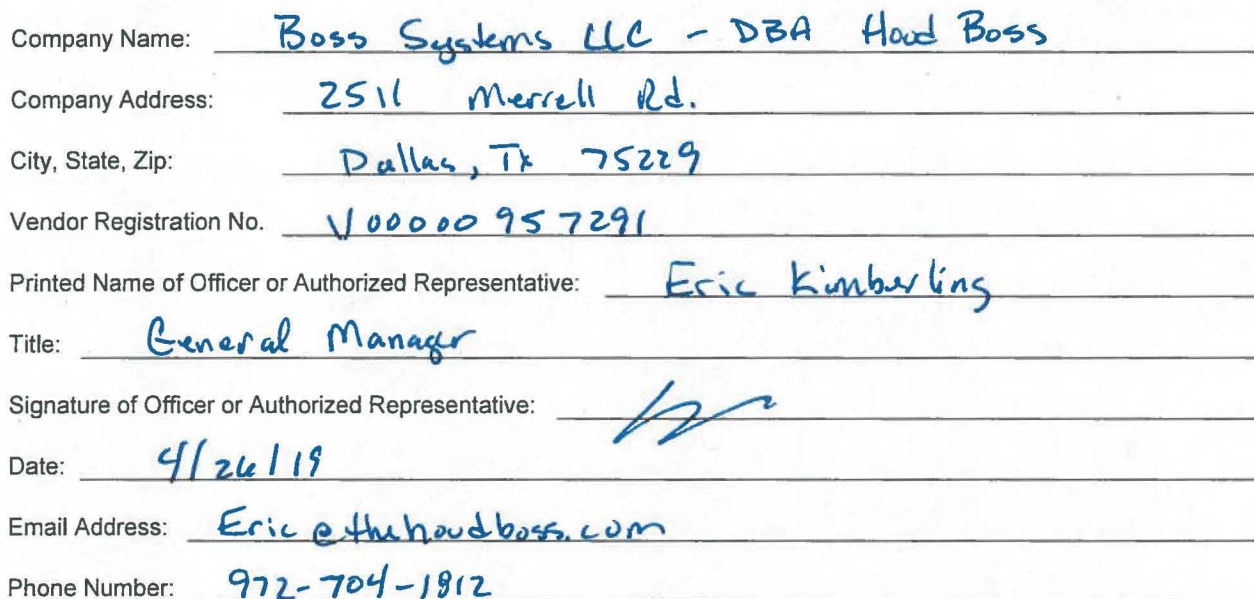 Company Name: Boss Systems LLC - DBA Hood Boss
Company Address: 2511 Merrell Rd.
City, State, Zip: Dallas, Tx 75229
Vendor Registration No. V00000957291
Printed Name of Officer or Authorized Representative: Eric Kimberling
Title: General Manager
Signature of Officer or Authorized Representative:
Date: 4/26/19
Email Address: Eric@thehoodboss.com
Phone Number: 972-704-1812